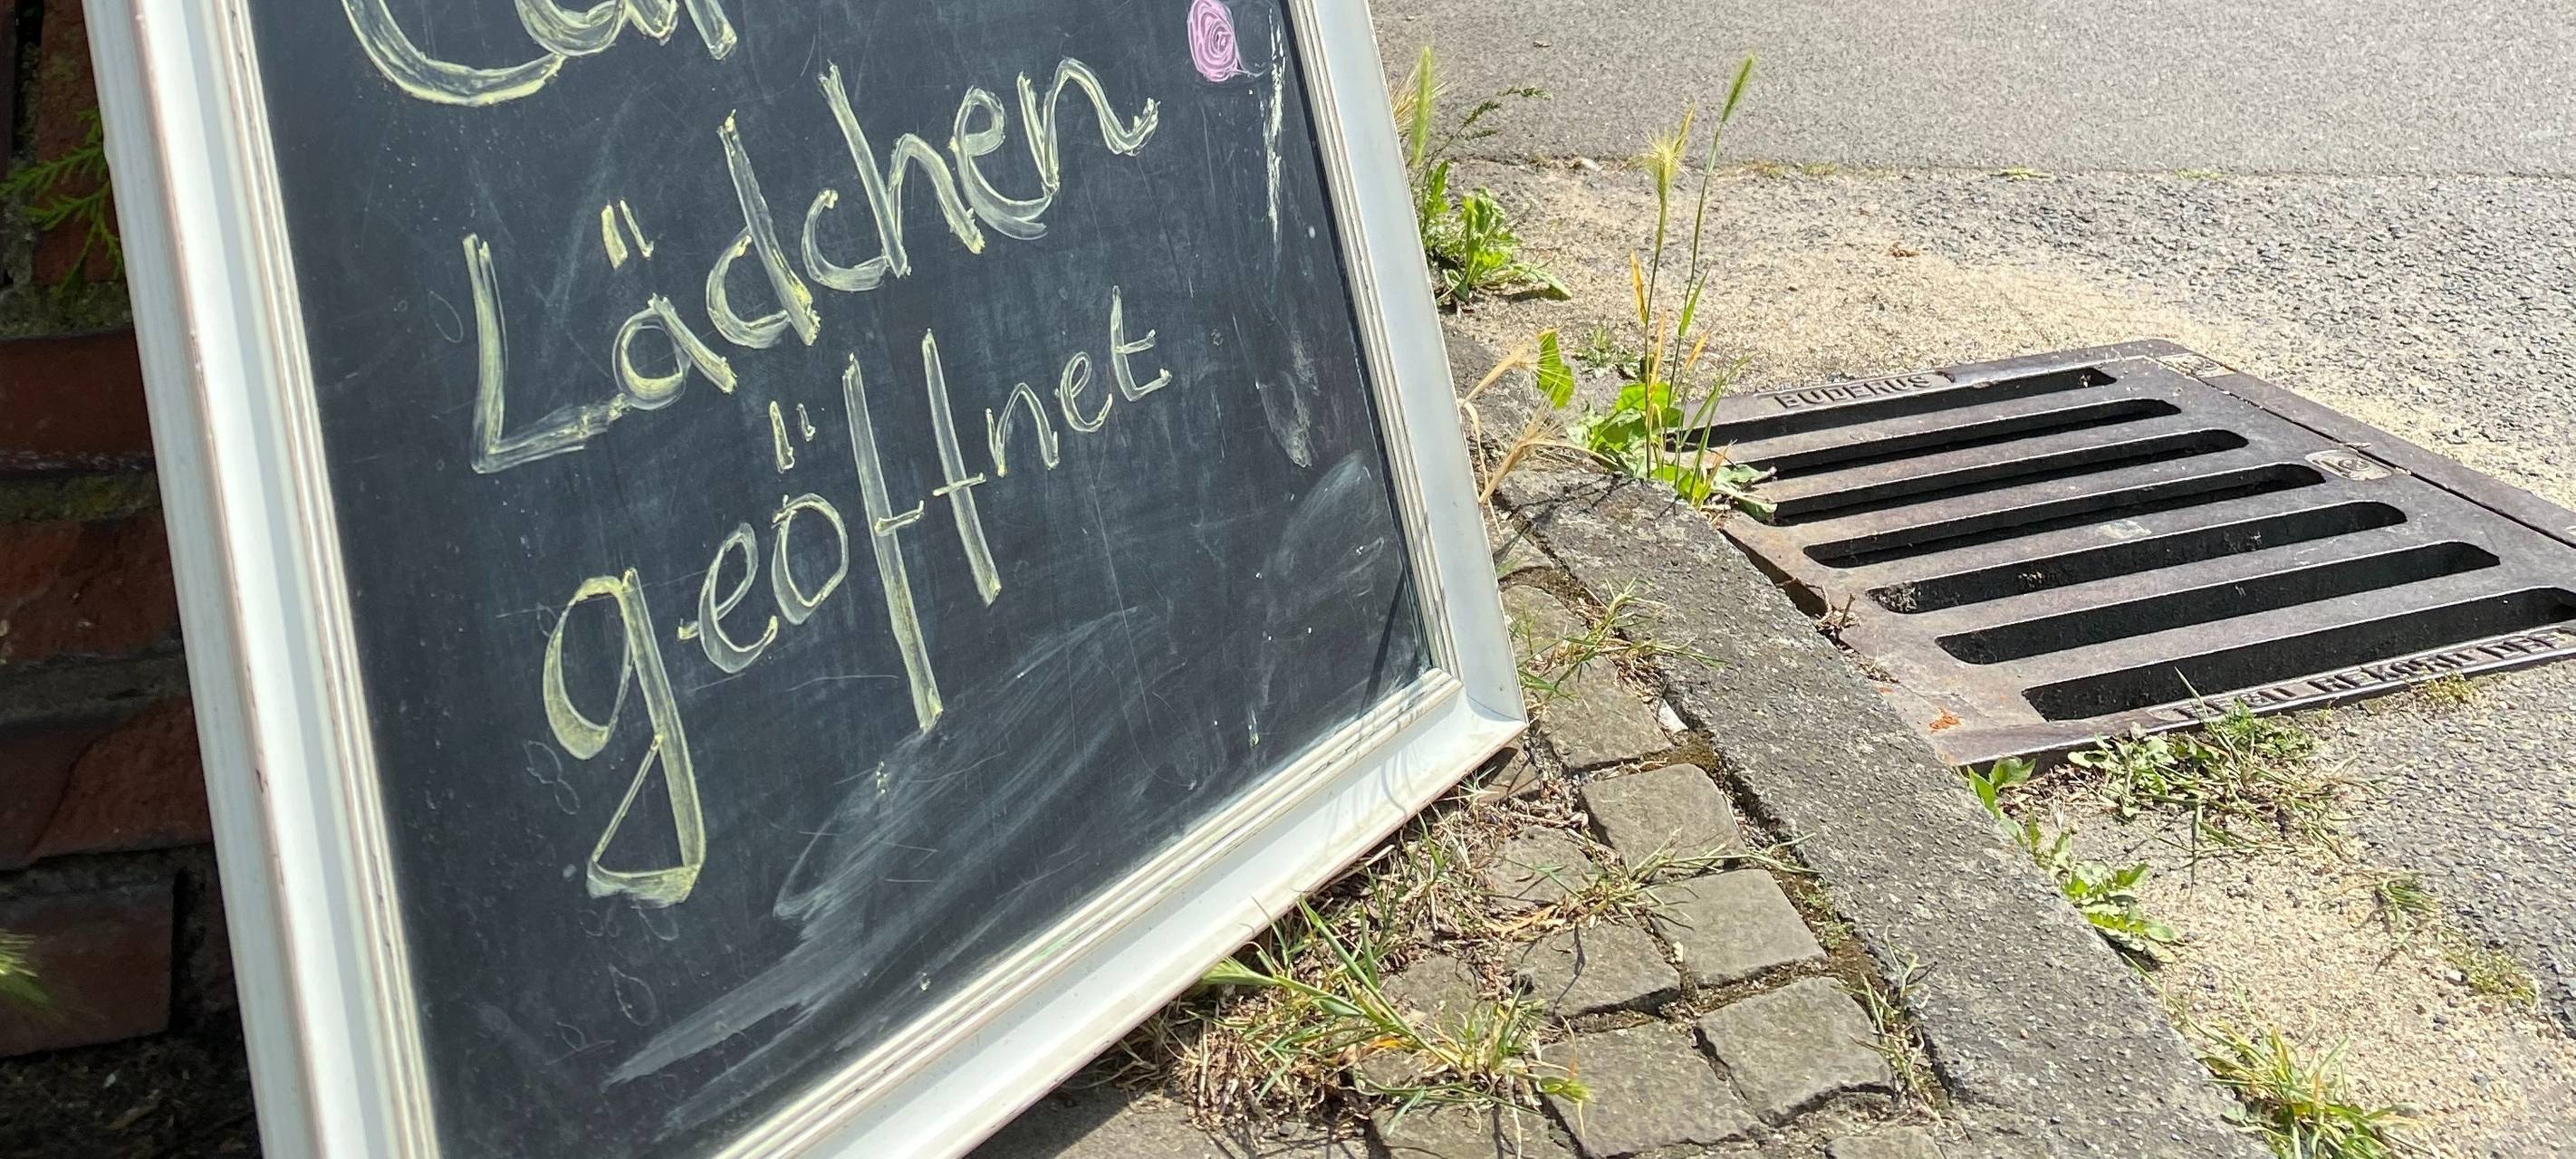 Lädchen
geöffnet
BUDERUS